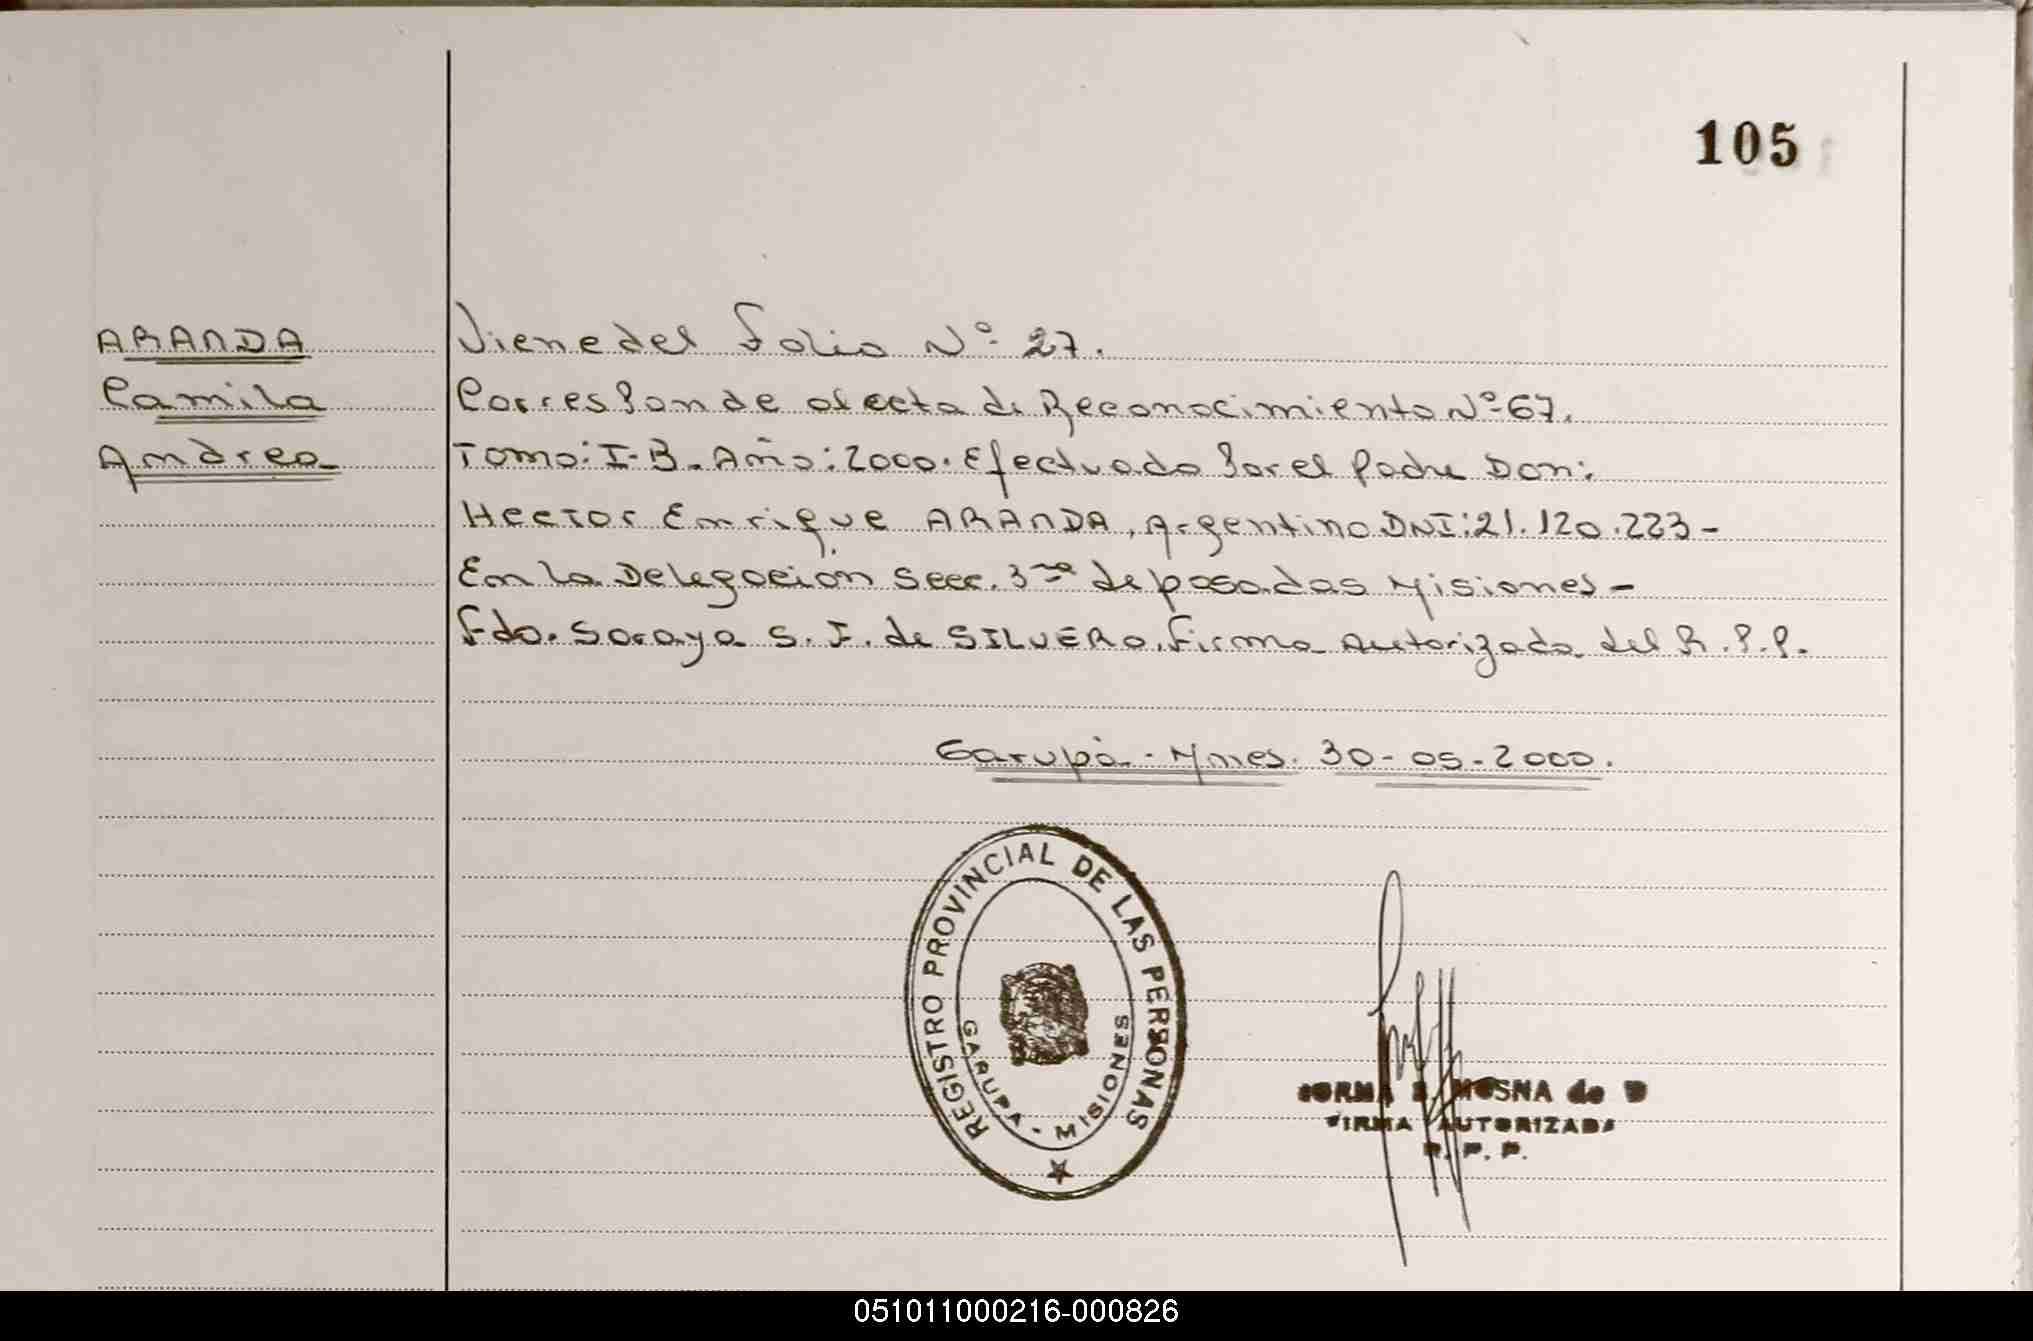 105
ARANDA
Camila
Andrea
Viene del folio Nº 27.
Corresponde al acta de Reconocimiento Nº 67.
Tomo: I-B. Año: 2000. Efectuado por el Padre Don:
Hector Enrique ARANDA, Argentino DNI: 21.120.223 -
En la Delegacion Secc. 3ra de posadas Misiones -
fdo. Soraya S. I. de SILVERO. firma Autorizada del R.P.P.
Garupá - Mnes. 30-05-2000.
REGISTRO PROVINCIAL DE LAS PERSONAS
GARUPA - MISIONES
NORMA MOSNA de
FIRMA AUTORIZADA
R. P. P.
051011000216-000826